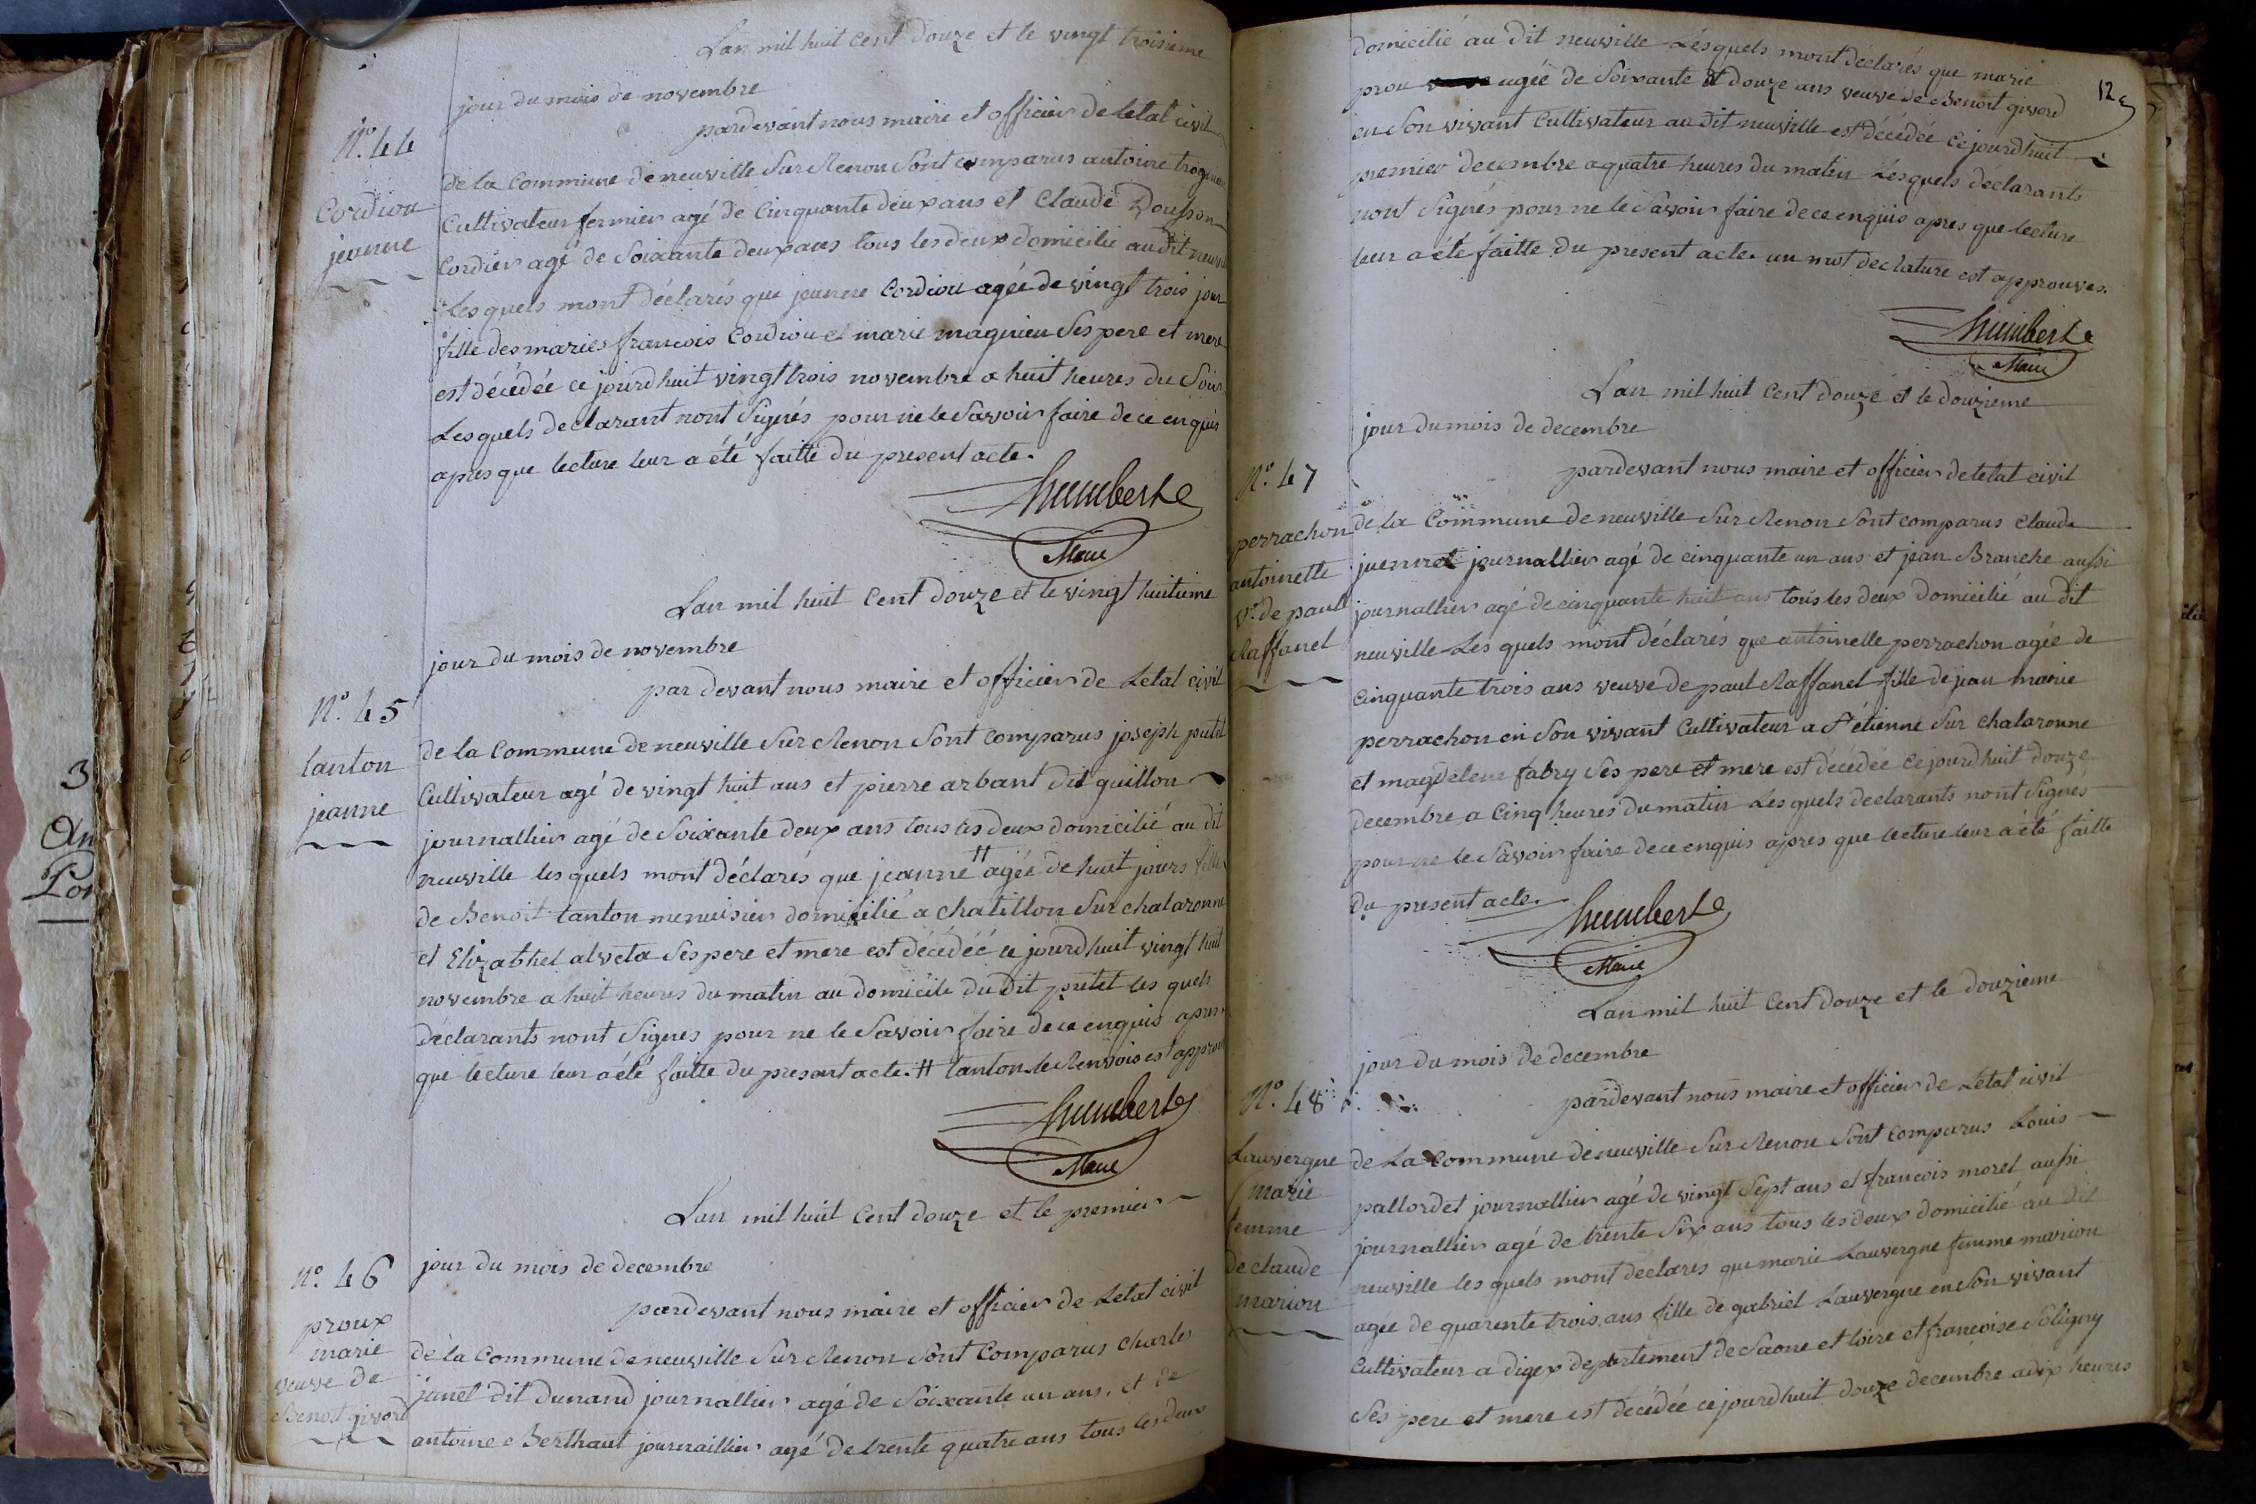 Lan mil huit Cent Douze et le vingt troisieme
jour du mois de novembre
pardevant nous maire et officier de Letat civil
N.º 44
Cordiou
jeanne
de la Commune de neuville Sur Renon Sont comparus antoine
Cultivateur fermier agé de Cinquante deux ans et Claude
Cordier agé de Soixante deux ans tous les deux domicilié au dit
Les quels mont déclarés que jeanne Cordiou agée de vingt trois jour
fille des mariés francois Cordiou et marie magnieu Ses pere et mere
est décédée ce jourdhuit vingt trois novembre a huit heures du Soir
Lesquels declarant nont Signés pour ne le Savoir faire de ce enquis
apres que lecture leur a été faitte du present acte.
humbert
Maire
Lan mil huit Cent Douze et le vingt huitieme
jour du mois de novembre
par devant nous maire et officier de Letat civil
N.º 45
tanton
jeanne
de la Commune de neuville Sur Renon Sont Comparus joseph putet
Cultivateur agé de vingt huit ans et pierre arbant dit guillon
journallier agé de Soixante deux ans tous les deux domicilié au dit
neuville les quels mont déclarés que jeanne # agée de huit jours fille
de Benoit tanton menuisier domicilié a chatillon Sur chalaronne
et Elizabhet alveta Ses pere et mere est décédéé ce jourdhuit vingt huit
novembre a huit heures du matin au domicile du dit putet les quels
déclarants nont Signés pour ne le Savoir faire de ce enquis apres
que lecture leur a été faitte du present acte. # tanton le Renvois est
humbert
Maire
Lan mil huit Cent douze et le premier
jour du mois de decembre
pardevant nous maire et officier de Letat civil
Nº. 46
proux
marie
veuve de
Benoit givord
de la Commune de neuville Sur Renon Sont Comparus Charles
janet dit Dunand journallier agé de Soixante un ans, et de
antoine Berthaut journaillier agé de trente quatre ans tous les deux
12
domicilié au dit neuville Lesquels mont déclarés que marie
prou agée de Soixante et douze ans veuve de Benoit givord
en Son vivant Cultivateur au dit neuville est décédée ce jourdhuit
premier decembre a quatre heures du matin Lesquels declarants
nont Signés pour ne le Savoir faire de ce enquis apres que lecture
leur a été faitte du present acte. un mot de rature est approuvés.
humbert
Maire
Lan mil huit Cent douze et le douzieme
jour du mois de decembre
pardevant nous maire et officier de letat civil
Nº. 47
perrachon
antoinette
vᵉ. de paul
Raffanel
de la Commune de neuville Sur Renon Sont comparus Claude
juennet journallier agé de cinquante un ans et jean Branche aussi
journallier agé de cinquante huit ans tous les deux domicilié au dit
neuville Les quels mont déclarés que antoinelle perrachon agée de
Cinquante trois ans veuve de paul Raffanel fille de jean marie
perrachon en Son vivant Cultivateur a St étienne Sur chalaronne
et magdelene fabry Ses pere et mere est décédée ce jourdhuit douze
decembre a Cinq heures du matin Les quels declarants nont Signés
pour ne le Savoir faire de ce enquis apres que lecture leur a été faitte
du present acte.
humbert
Maire
Lan mil huit Cent Douze et le douzieme
jour du mois de decembre
pardevant nous maire et officier de Letat civil
Nº. 48
Lauvergne
marie
femme
de claude
marion
de La Commune de neuville Sur Renon Sont Comparus Louis
pallordet journallier agé de vingt Sept ans et francois morel aussi
journallier agé de trente Six ans tous les deux domicilié au dit
neuville les quels mont déclares que marie Lauvergne femme marion
agée de quarente trois ans fille de gabriel Lauvergne en Son vivant
Cultivateur a digex departement de Saone et loire et francoise Soligny
Ses pere et mere est décédée ce jourdhuit douze decembre a dix heures